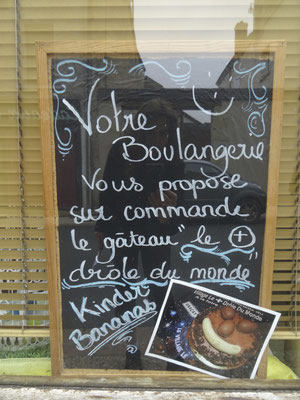 Votre
Boulangerie
Vous propose
sur commande
le gâteau "le +
drôle du monde
Kinder
Bananas
Le + Drôle Du Monde